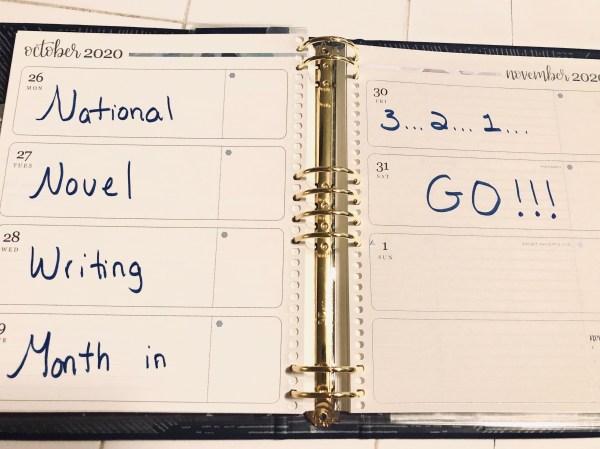 october 2020
26
MON
National
27
TUES
Novel
28
WED
Writing
9
Month in
november 2020
30
FRI
3... 2... 1...
31
SAT
GO!!!
1
SUN